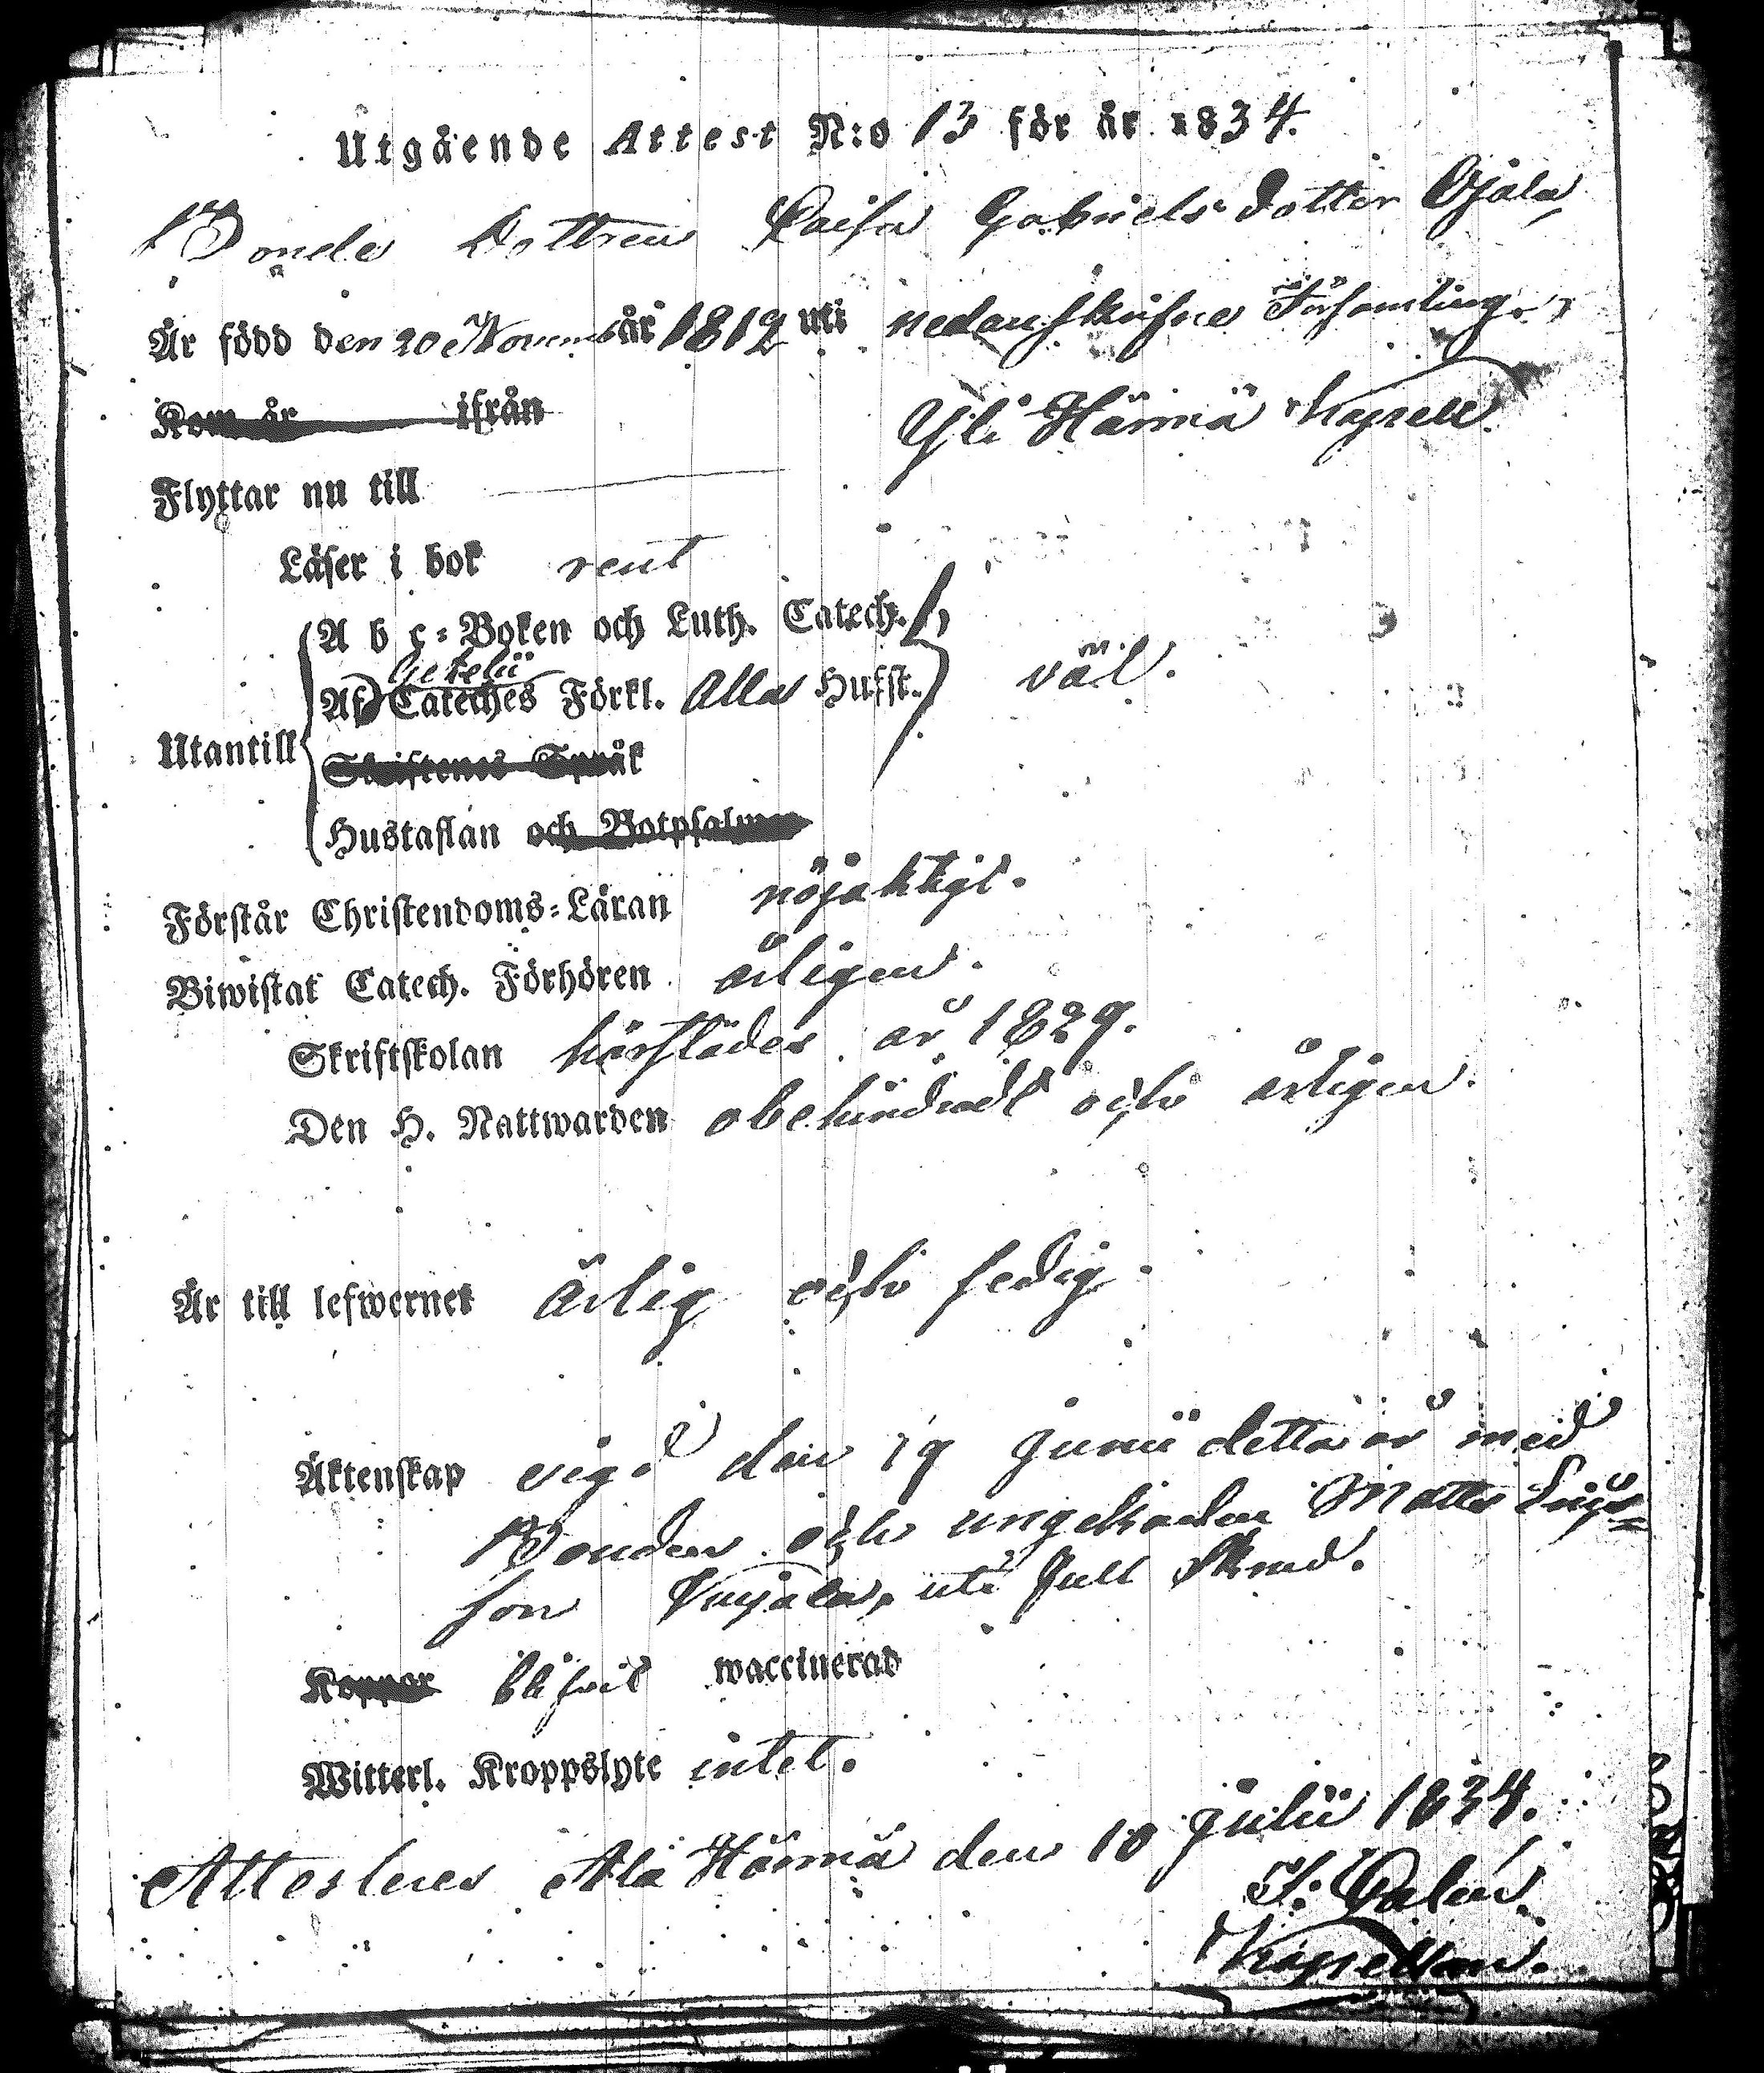 Utgående Attest N:o 13 för år 1834.
Bonde Dottren Caisa Gabriels dotter Ojala
Är född den 20 Novemb år 1812 uti nedanskrifne Församling,
Kom år ifrån Yli Härmä Kapell.
Flyttar nu till
Läser i bok rent
A b c-Boken och Luth. Catech.
Gezelii
Af Cateches Förkl. Alla Hufst. väl.
Utantill
Skriftenes Språk
Hustaflan och Botpsalmen
Förstår Christendoms-Läran nöjaktigt.
Biwistat Catech. Förhören årligen.
Skriftskolan härstädes år 1829.
Den H. Nattwarden obehindradt och årligen.
Är till lefwernet ärlig och sedig.
Äktenskap vigd den 19 Junii detta år med
Bonden och ungekarlen Matts
son uti full Skrud.
Koppor blifvit waccinerad
Witterl. Kroppslyte intet.
Attesteres Ala Härmä den 10 Julii 1834.
Kapellan.